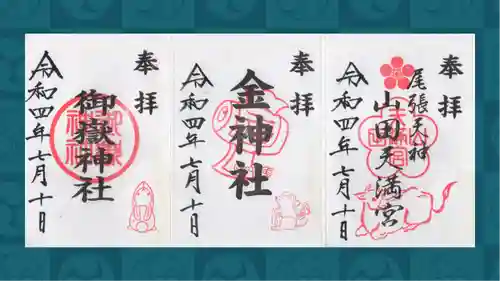 奉拝
尾張天神
山田天満宮
令和四年七月十日
奉拝
金神社
令和四年七月十日
奉拝
御嶽神社
令和四年七月十日